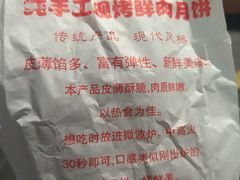 纯手工现烤鲜肉月饼
传统产品 现代风格
皮薄馅多、富有弹性、新鲜美味
本产品皮薄酥脆,肉质鲜嫩,
以热食为佳。
想吃时放进微波炉,中高火
30秒即可,口感类似刚出炉的